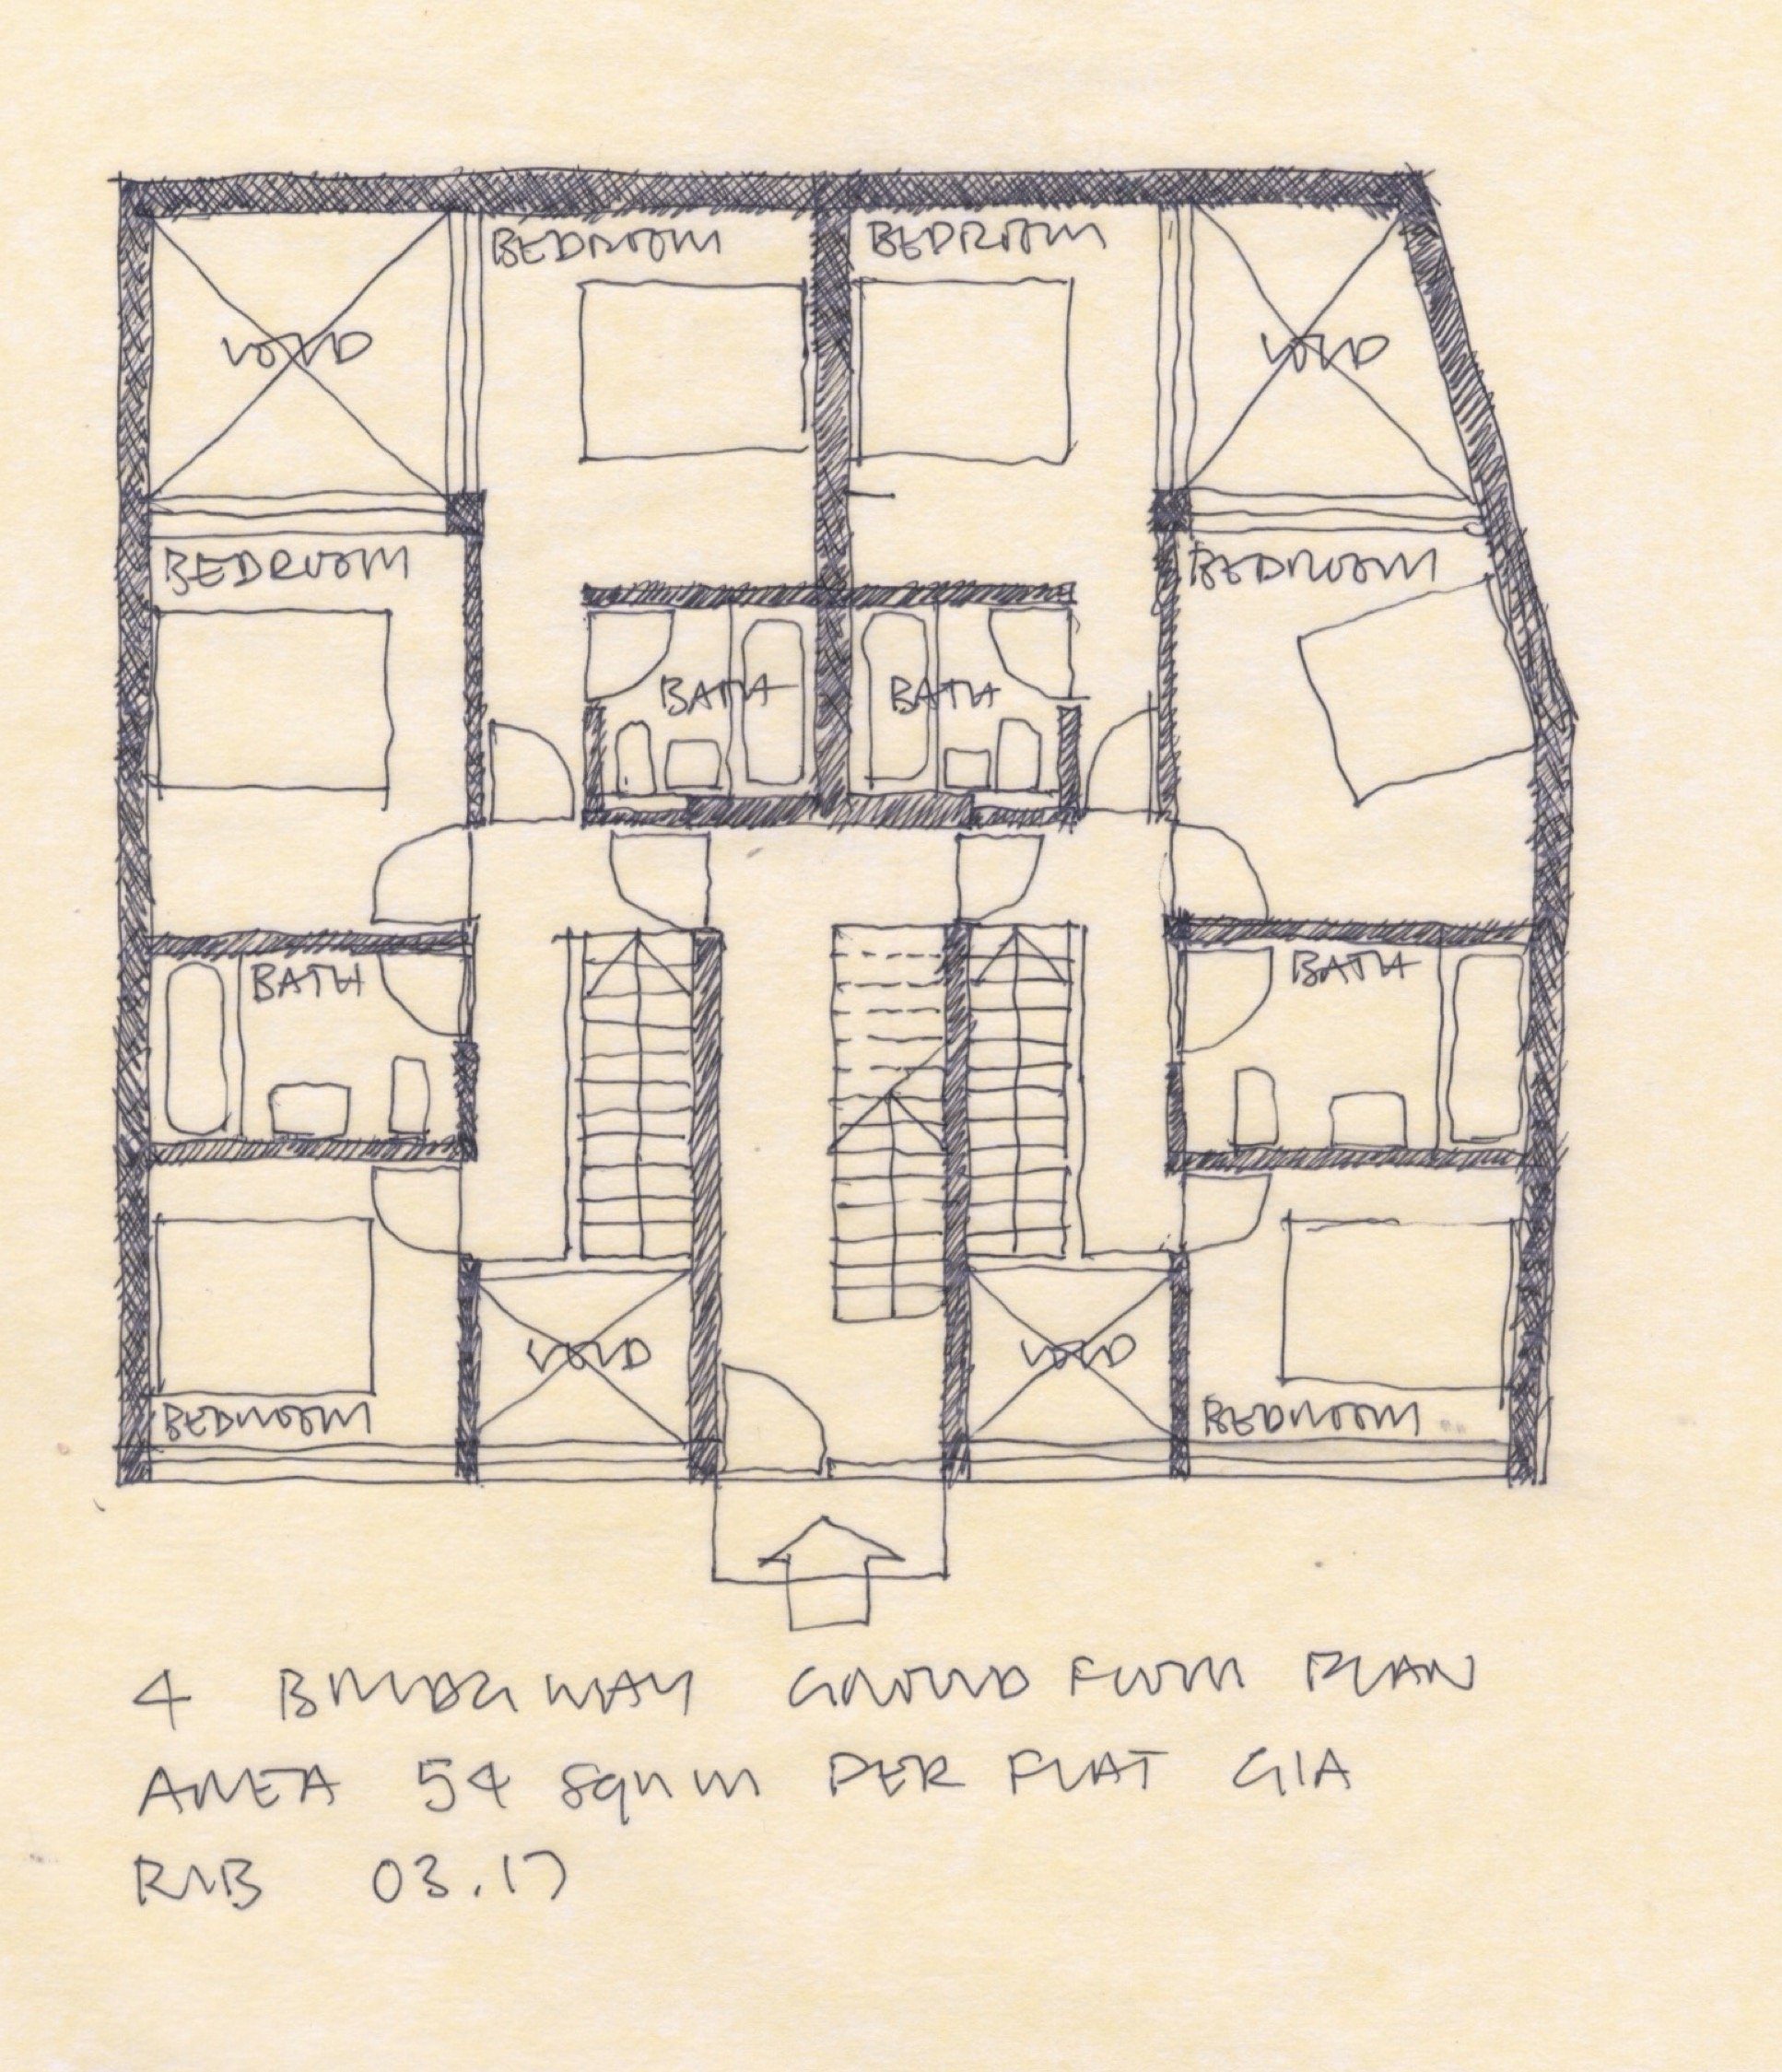 BEDROOM BEDROOM
VOID VOID
BEDROOM BEDROOM
BATH BATH
BATH BATH
VOID VOID
BEDROOM BEDROOM
4 BRIDGEWAY GROUND FLOOR PLAN
AREA 54 sqm PER FLAT GIA
03.17